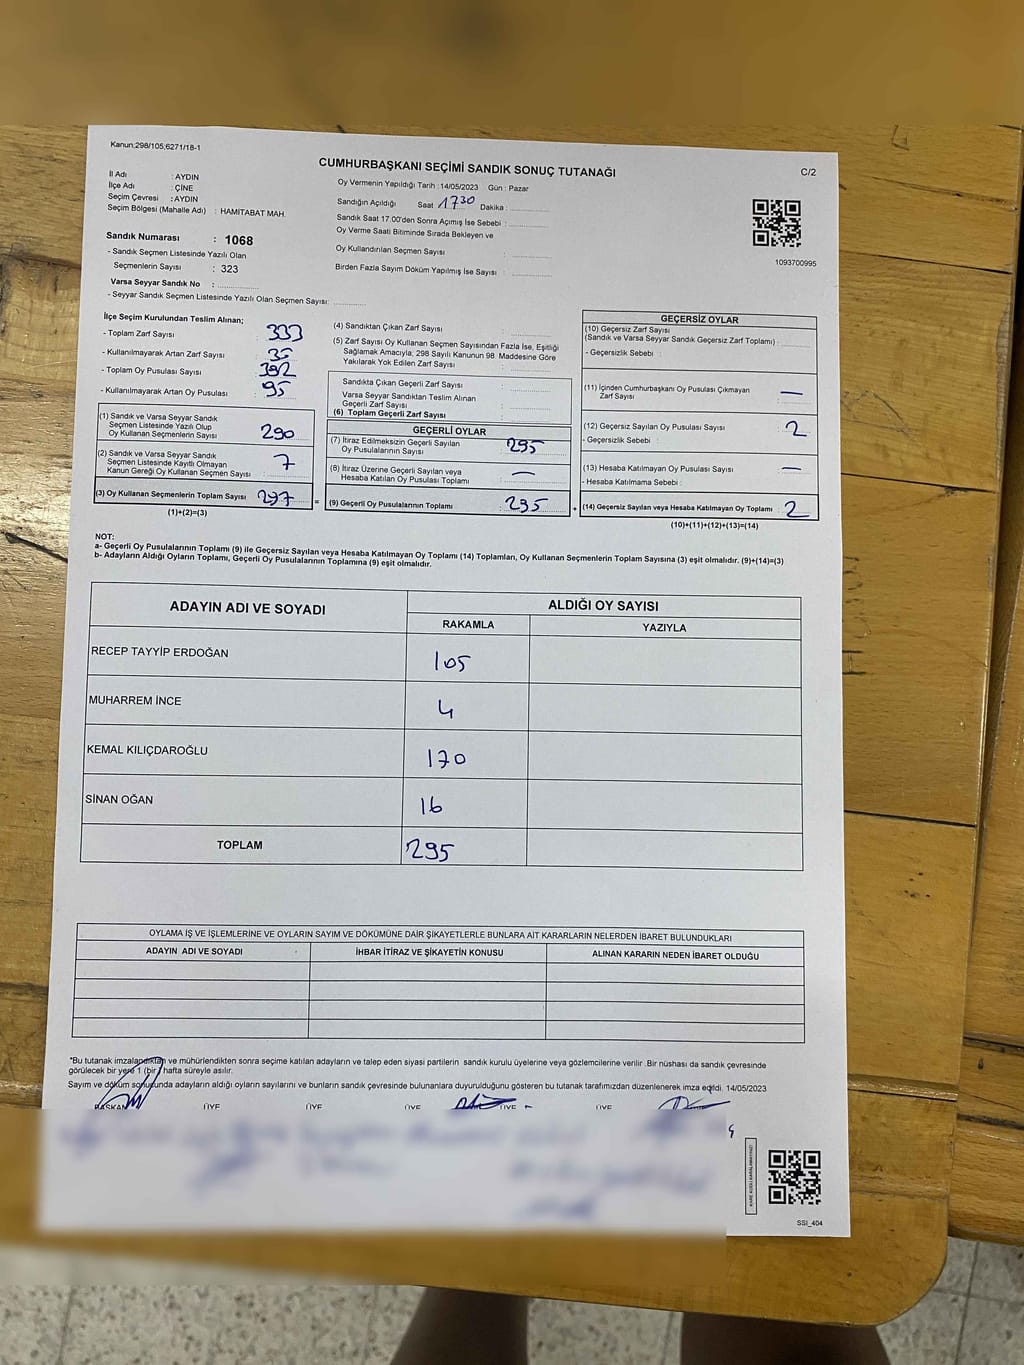 Kanun:298/105;6271/18-1
CUMHURBAŞKANI SEÇİMİ SANDIK SONUÇ TUTANAĞI
C/2
İl Adı : AYDIN
İlçe Adı : ÇİNE
Seçim Çevresi : AYDIN
Seçim Bölgesi (Mahalle Adı) : HAMİTABAT MAH.
Sandık Numarası : 1068
- Sandık Seçmen Listesinde Yazılı Olan
Seçmenlerin Sayısı : 323
Varsa Seyyar Sandık No :
- Seyyar Sandık Seçmen Listesinde Yazılı Olan Seçmen Sayısı:
Oy Vermenin Yapıldığı Tarih : 14/05/2023 Gün : Pazar
Sandığın Açıldığı Saat 1730 Dakika :
Sandık Saat 17.00'den Sonra Açımış İse Sebebi :
Oy Verme Saati Bitiminde Sırada Bekleyen ve
Oy Kullandırılan Seçmen Sayısı :
Birden Fazla Sayım Döküm Yapılmış İse Sayısı :
1093700995
İlçe Seçim Kurulundan Teslim Alınan;
- Toplam Zarf Sayısı : 333
- Kullanılmayarak Artan Zarf Sayısı :
- Toplam Oy Pusulası Sayısı :
- Kullanılmayarak Artan Oy Pusulası : 95
(1) Sandık ve Varsa Seyyar Sandık
Seçmen Listesinde Yazılı Olup
Oy Kullanan Seçmenlerin Sayısı : 290
(2) Sandık ve Varsa Seyyar Sandık
Seçmen Listesinde Kayıtlı Olmayan
Kanun Gereği Oy Kullanan Seçmen Sayısı : 7
(3) Oy Kullanan Seçmenlerin Toplam Sayısı : 297
(1)+(2)=(3)
(4) Sandıktan Çıkan Zarf Sayısı :
(5) Zarf Sayısı Oy Kullanan Seçmen Sayısından Fazla İse, Eşitliği
Sağlamak Amacıyla, 298 Sayılı Kanunun 98. Maddesine Göre
Yakılarak Yok Edilen Zarf Sayısı :
Sandıkta Çıkan Geçerli Zarf Sayısı :
Varsa Seyyar Sandıktan Teslim Alınan
Geçerli Zarf Sayısı :
(6) Toplam Geçerli Zarf Sayısı :
GEÇERLİ OYLAR
(7) İtiraz Edilmeksizin Geçerli Sayılan
Oy Pusulalarının Sayısı : 295
(8) İtiraz Üzerine Geçerli Sayılan veya
Hesaba Katılan Oy Pusulası Toplamı : —
= (9) Geçerli Oy Pusulalarının Toplamı : 295
GEÇERSİZ OYLAR
(10) Geçersiz Zarf Sayısı
(Sandık ve Varsa Seyyar Sandık Geçersiz Zarf Toplamı) :
- Geçersizlik Sebebi :
(11) İçinden Cumhurbaşkanı Oy Pusulası Çıkmayan
Zarf Sayısı : —
(12) Geçersiz Sayılan Oy Pusulası Sayısı : 2
- Geçersizlik Sebebi :
(13) Hesaba Katılmayan Oy Pusulası Sayısı : —
- Hesaba Katılmama Sebebi :
+ (14) Geçersiz Sayılan veya Hesaba Katılmayan Oy Toplamı : 2
(10)+(11)+(12)+(13)=(14)
NOT:
a- Geçerli Oy Pusulalarının Toplamı (9) ile Geçersiz Sayılan veya Hesaba Katılmayan Oy Toplamı (14) Toplamları, Oy Kullanan Seçmenlerin Toplam Sayısına (3) eşit olmalıdır. (9)+(14)=(3)
b- Adayların Aldığı Oyların Toplamı, Geçerli Oy Pusulalarının Toplamına (9) eşit olmalıdır.
ADAYIN ADI VE SOYADI
ALDIĞI OY SAYISI
RAKAMLA YAZIYLA
RECEP TAYYİP ERDOĞAN 105
MUHARREM İNCE 4
KEMAL KILIÇDAROĞLU 170
SİNAN OĞAN 16
TOPLAM 295
OYLAMA İŞ VE İŞLEMLERİNE VE OYLARIN SAYIM VE DÖKÜMÜNE DAİR ŞİKAYETLERLE BUNLARA AİT KARARLARIN NELERDEN İBARET BULUNDUKLARI
ADAYIN ADI VE SOYADI İHBAR İTİRAZ VE ŞİKAYETİN KONUSU ALINAN KARARIN NEDEN İBARET OLDUĞU
*Bu tutanak imzalandıktan ve mühürlendikten sonra seçime katılan adayların ve talep eden siyasi partilerin sandık kurulu üyelerine veya gözlemcilerine verilir .Bir nüshası da sandık çevresinde
görülecek bir yere 1 (bir) hafta süreyle asılır.
Sayım ve döküm sonucunda adayların aldığı oyların sayılarını ve bunların sandık çevresinde bulunanlara duyurulduğunu gösteren bu tutanak tarafımızdan düzenlenerek imza edildi. 14/05/2023
BAŞKAN ÜYE ÜYE ÜYE ÜYE ÜYE
SSI_404